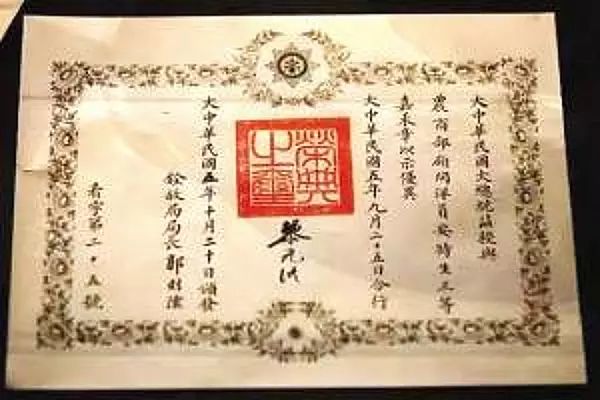 大中華民國大總統茲授與
農商部顧問洋員安特生三等
嘉禾章以示優異
大中華民國五年九月二十五日令行
榮典
之璽
黎元洪
大中華民國五年十月二十日頒發
銓敘局局長郭則澐
字第二十五號